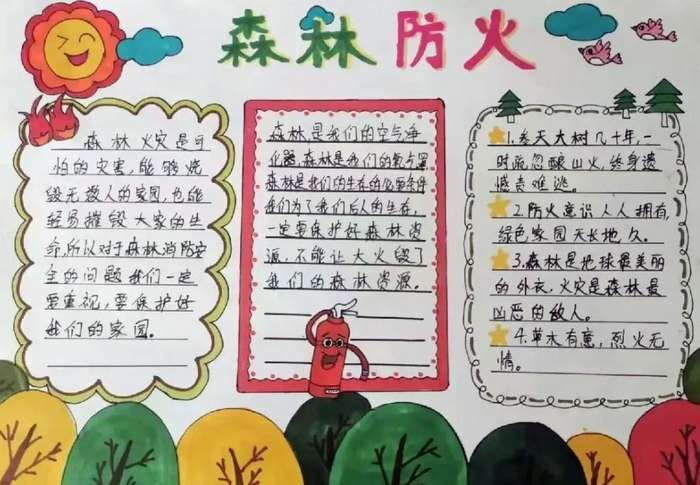 森林防火
森林火灾是可
怕的灾害,能够烧
毁无数人的家园,也能
轻易摧毁大家的生
命,所以对于森林消防安
全的问题我们一定
要重视,要保护好
我们的家园。
森林是我们的空气净
化器,森林是我们的氧气罩
森林是我们的生存的必要条件
我们为了我们后人的生存,
一定要保护好森林资
源,不能让大火毁了
我们的森林资源。
1.参天大树几十年,一
时疏忽酿山火,终身遗
憾责难逃。
2.防火意识人人拥有,
绿色家园天长地久。
3.森林是地球最美丽
的外衣,火灾是森林最
凶恶的敌人。
4.草木有意,烈火无
情。